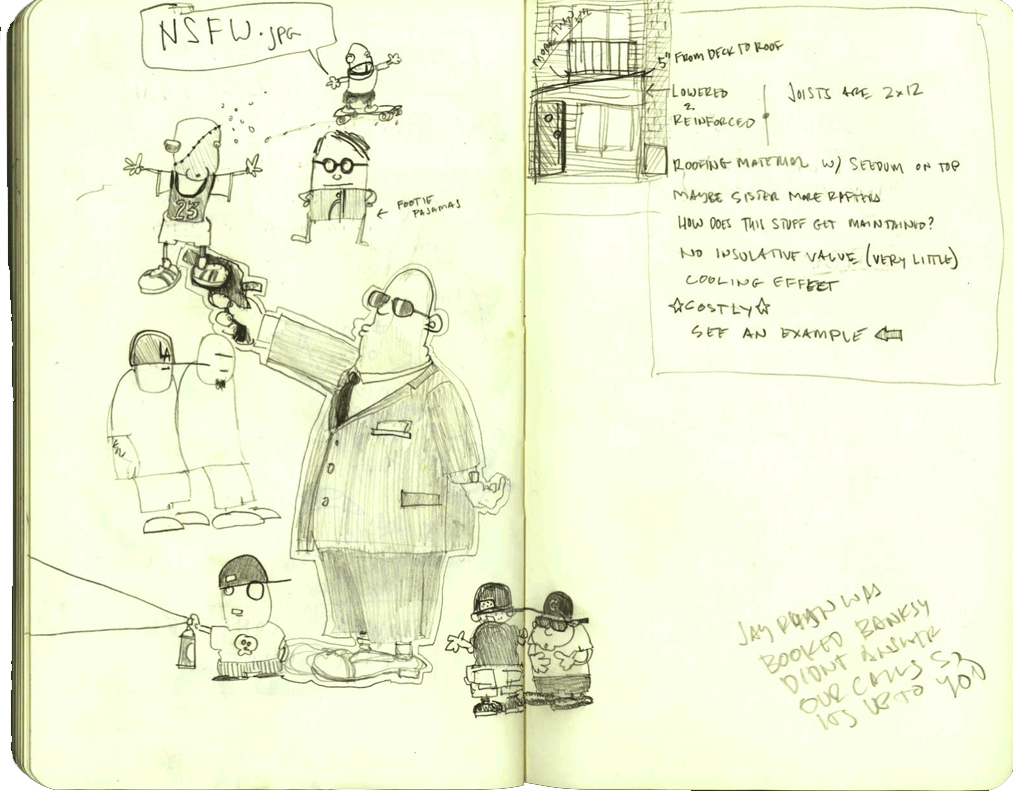 NSFW.JPG
23
← FOOTIE
PAJAMAS
LA
MORE THAN
5" FROM DECK TO ROOF
← LOWERED
&
REINFORCED
JOISTS ARE 2x12
ROOFING MATERIAL W/ SEEDUM ON TOP
MAYBE SISTER MORE RAFTERS
HOW DOES THIS STUFF GET MAINTAINED?
NO INSULATIVE VALUE (VERY LITTLE)
COOLING EFFECT
☆COSTLY☆
SEE AN EXAMPLE ←
JAY RYAN WAS
BOOKED BANKSY
DIDNT ANSWER
OUR CALLS SO
ITS UP TO YOU